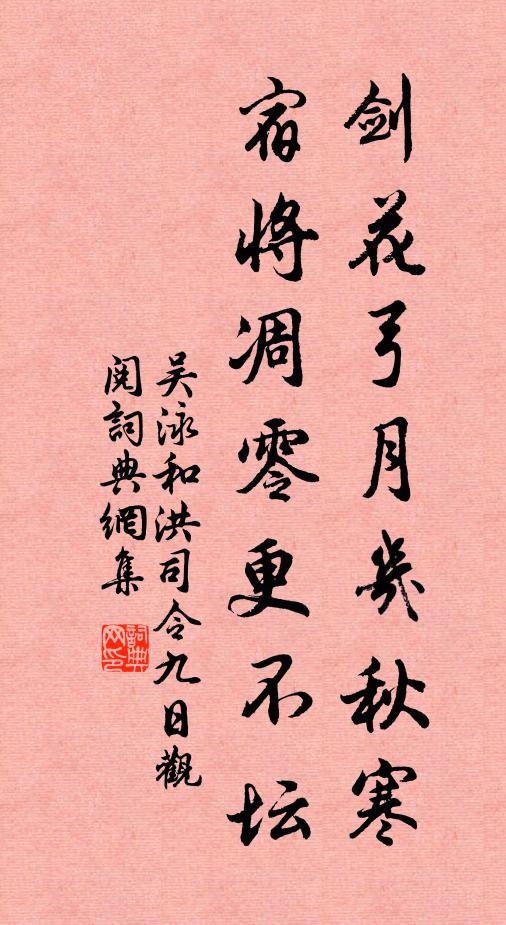 剑花弓月几秋寒
宿将凋零更不坛
吴泳和洪司令九日觀
閱詞典網集
詞典网印